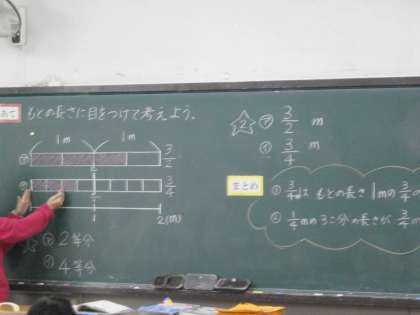 めあて もとの長さに目をつけて考えよう。
1m 1m
㋐ 3/2
㋑ 3/4
1 2(m)
㋐ 2等分
㋑ 4等分
2 ㋐ 3/2 m
㋑ 3/4 m
まとめ
3/4は もとの長さ 1mの 3/4
1/4mの3こ分の長さが 3/4